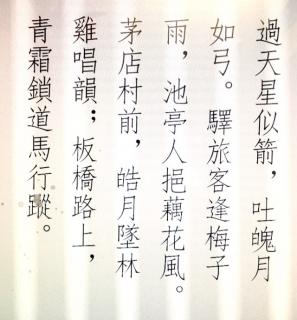 過天星似箭，吐魄月
如弓。驛旅客逢梅子
雨，池亭人挹藕花風。
茅店村前，皓月墜林
雞唱韻；板橋路上，
青霜鎖道馬行蹤。